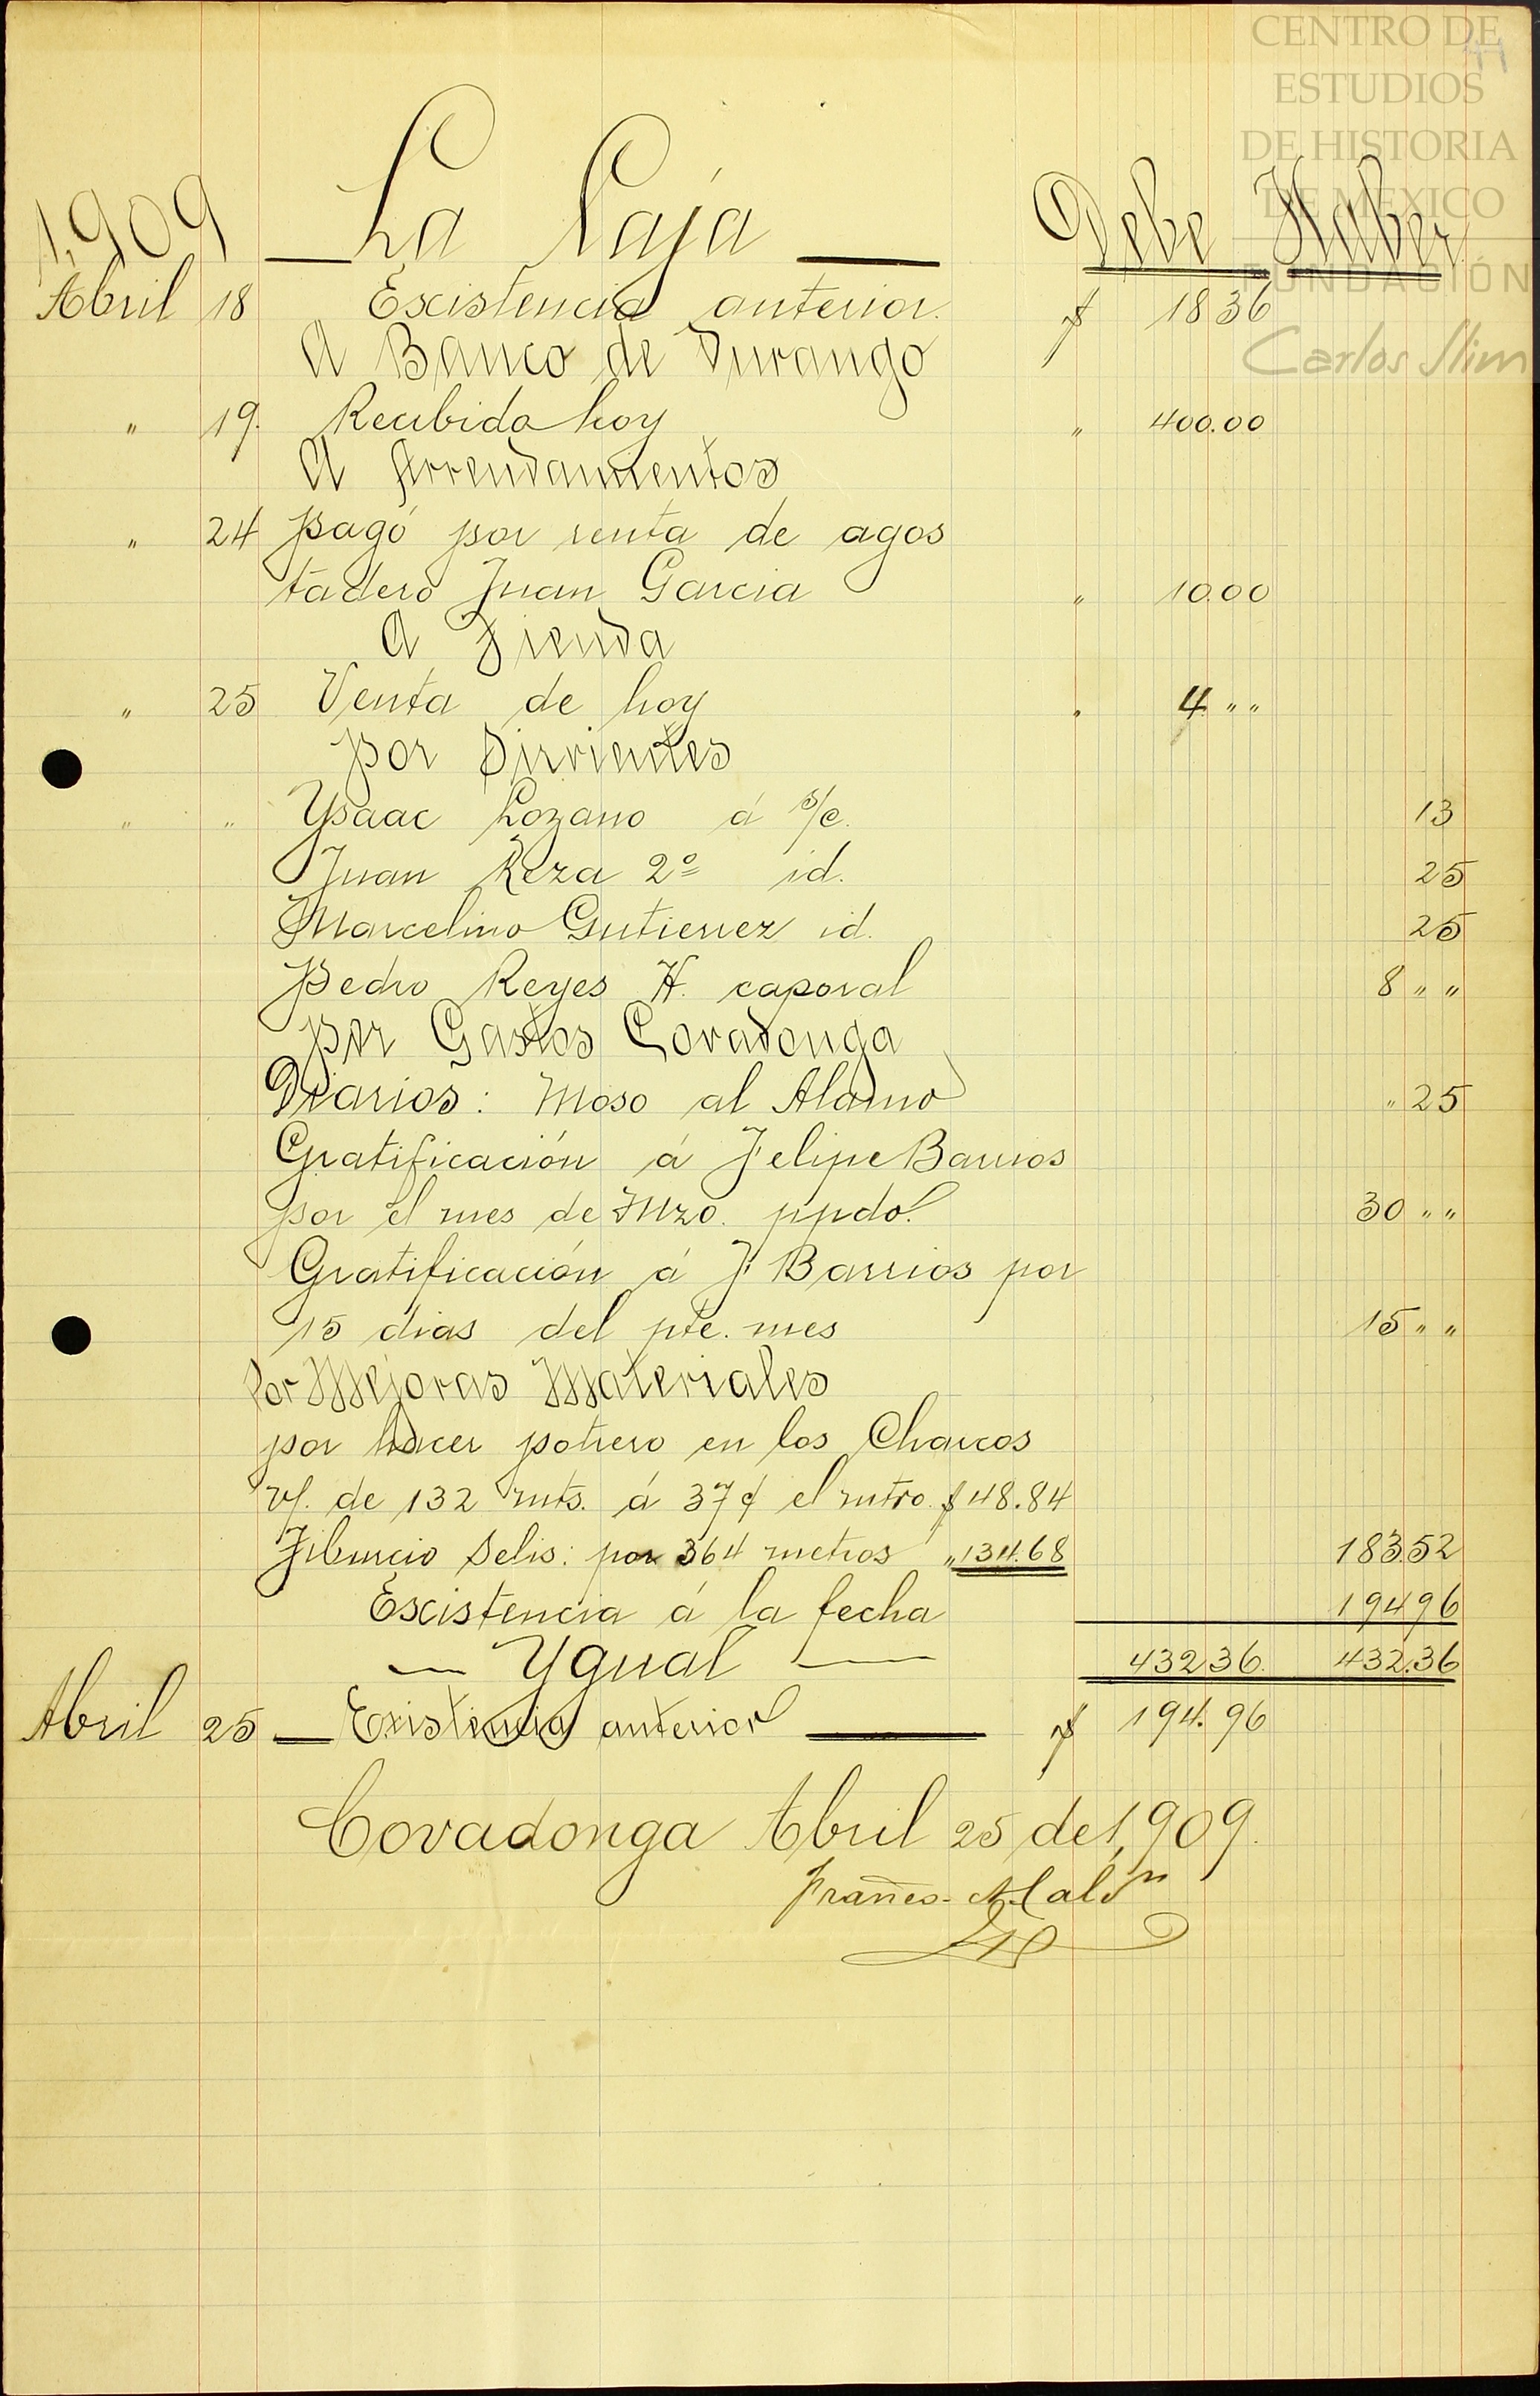 CENTRO DE
ESTUDIOS
DE HISTORIA
DE MÉXICO
FUNDACIÓN
Carlos Slim
1,909 La Caja Debe Haber
Abril 18 Escistencia anterior. $ 1836
A Banco de Durango
" 19. Recibido hoy " 400.00
A Arrendamientos
" 24 pagó por renta de agos
tadero Juan Garcia " 10.00
A Tienda
" 25 Venta de hoy " 4 " "
por Sirvientes
" " Ysaac Lozano á s/c. 13
Juan Reza 2º id. 25
Marcelino Gutierrez id. 25
Pedro Reyes H. caporal 8 " "
por Gastos Covadonga
Diarios: Moso al Alamo " 25
Gratificación á Felipe Barrios
por el mes de Mzo. ppdo. 30 " "
Gratificación á F Barrios por
15 dias del pte. mes 15 " "
Por Mejoras Materiales
por hacer potrero en los Charcos
de 132 mts. á 37¢ el mtro. $ 48.84
Tiburcio Selis: por 364 metros " 134.68 183.52
Escistencia á la fecha 194 96
Ygual 432 36. 432.36
Abril 25 Existencia anterior $ 194.96
Covadonga Abril 25 de 1,909.